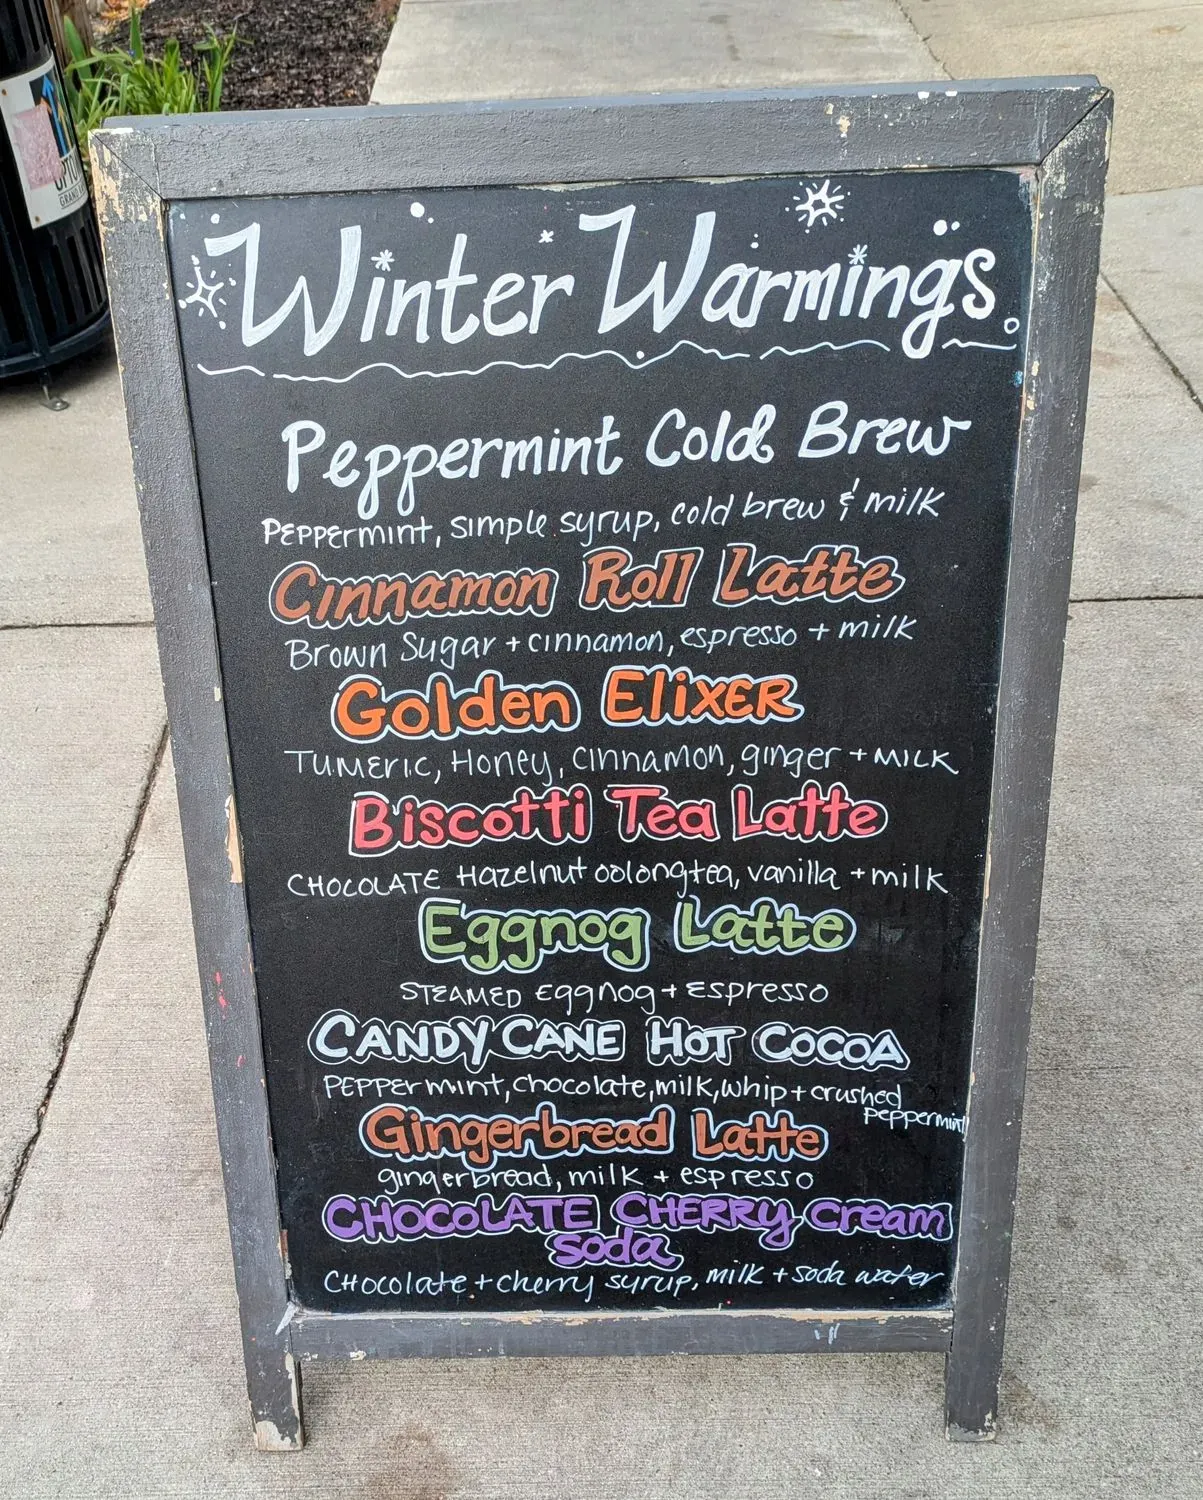 Winter Warmings
Peppermint Cold Brew
Peppermint, simple syrup, cold brew & milk
Cinnamon Roll Latte
Brown Sugar + cinnamon, espresso + milk
Golden Elixer
Tumeric, Honey, cinnamon, ginger + milk
Biscotti Tea Latte
CHOCOLATE Hazelnut oolong tea, vanilla + milk
Eggnog Latte
STEAMED Eggnog + Espresso
CANDY CANE HOT COCOA
PEPPERmint, chocolate, milk, whip + crushed
peppermint
Gingerbread Latte
gingerbread, milk + espresso
CHOCOLATE CHERRY cream
soda
Chocolate + cherry syrup, milk + soda water